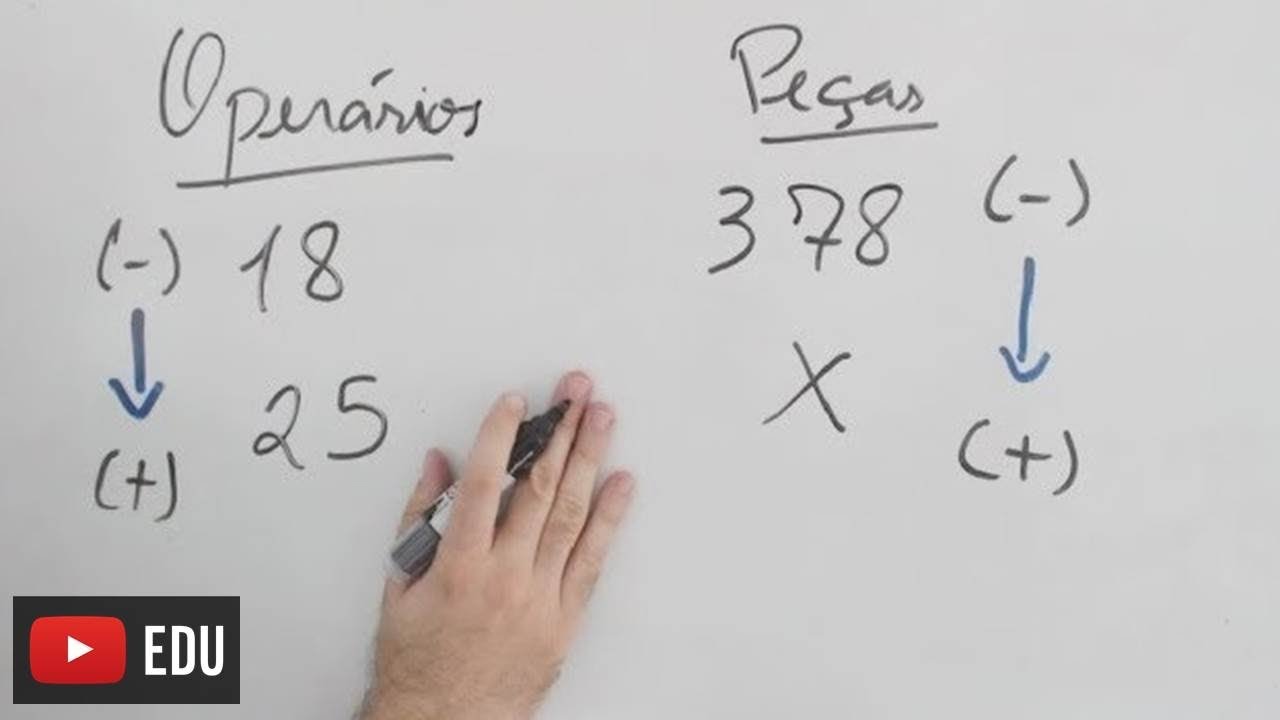 Operários Peças
(-) 18 378 (-)
25 X
(+) (+)
EDU